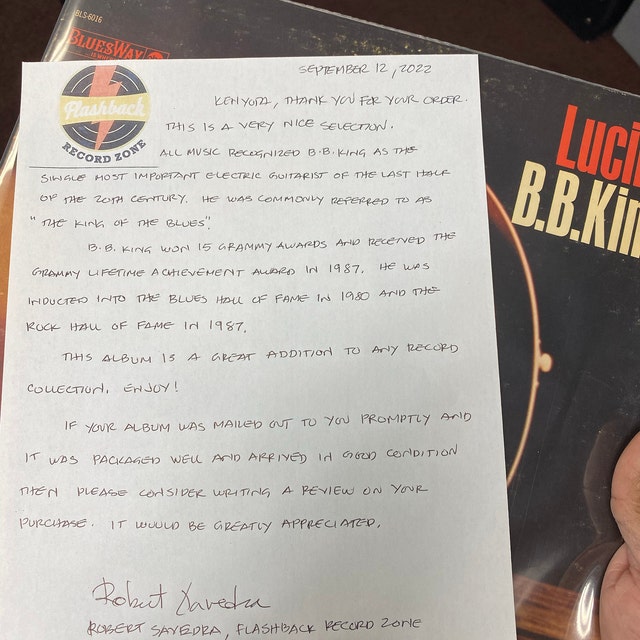 BLS-6016
BLUESWAY
Flashback
RECORD ZONE
LUCI
B.B.Kin
SEPTEMBER 12, 2022
KENYOTA, THANK YOU FOR YOUR ORDER.
THIS IS A VERY NICE SELECTION.
ALL MUSIC RECOGNIZED B.B. KING AS THE
SINGLE MOST IMPORTANT ELECTRIC GUITARIST OF THE LAST HALF
OF THE 20TH CENTURY. HE WAS COMMONLY REFERRED TO AS
"THE KING OF THE BLUES".
B.B. KING WON 15 GRAMMY AWARDS AND RECEIVED THE
GRAMMY LIFETIME ACHIEVEMENT AWARD IN 1987. HE WAS
INDUCTED INTO THE BLUES HALL OF FAME IN 1980 AND THE
ROCK HALL OF FAME IN 1987.
THIS ALBUM IS A GREAT ADDITION TO ANY RECORD
COLLECTION. ENJOY!
IF YOUR ALBUM WAS MAILED OUT TO YOU PROMPTLY AND
IT WAS PACKAGED WELL AND ARRIVED IN GOOD CONDITION
THEN PLEASE CONSIDER WRITING A REVIEW ON YOUR
PURCHASE. IT WOULD BE GREATLY APPRECIATED.
Robert Savedra
ROBERT SAVEDRA, FLASHBACK RECORD ZONE